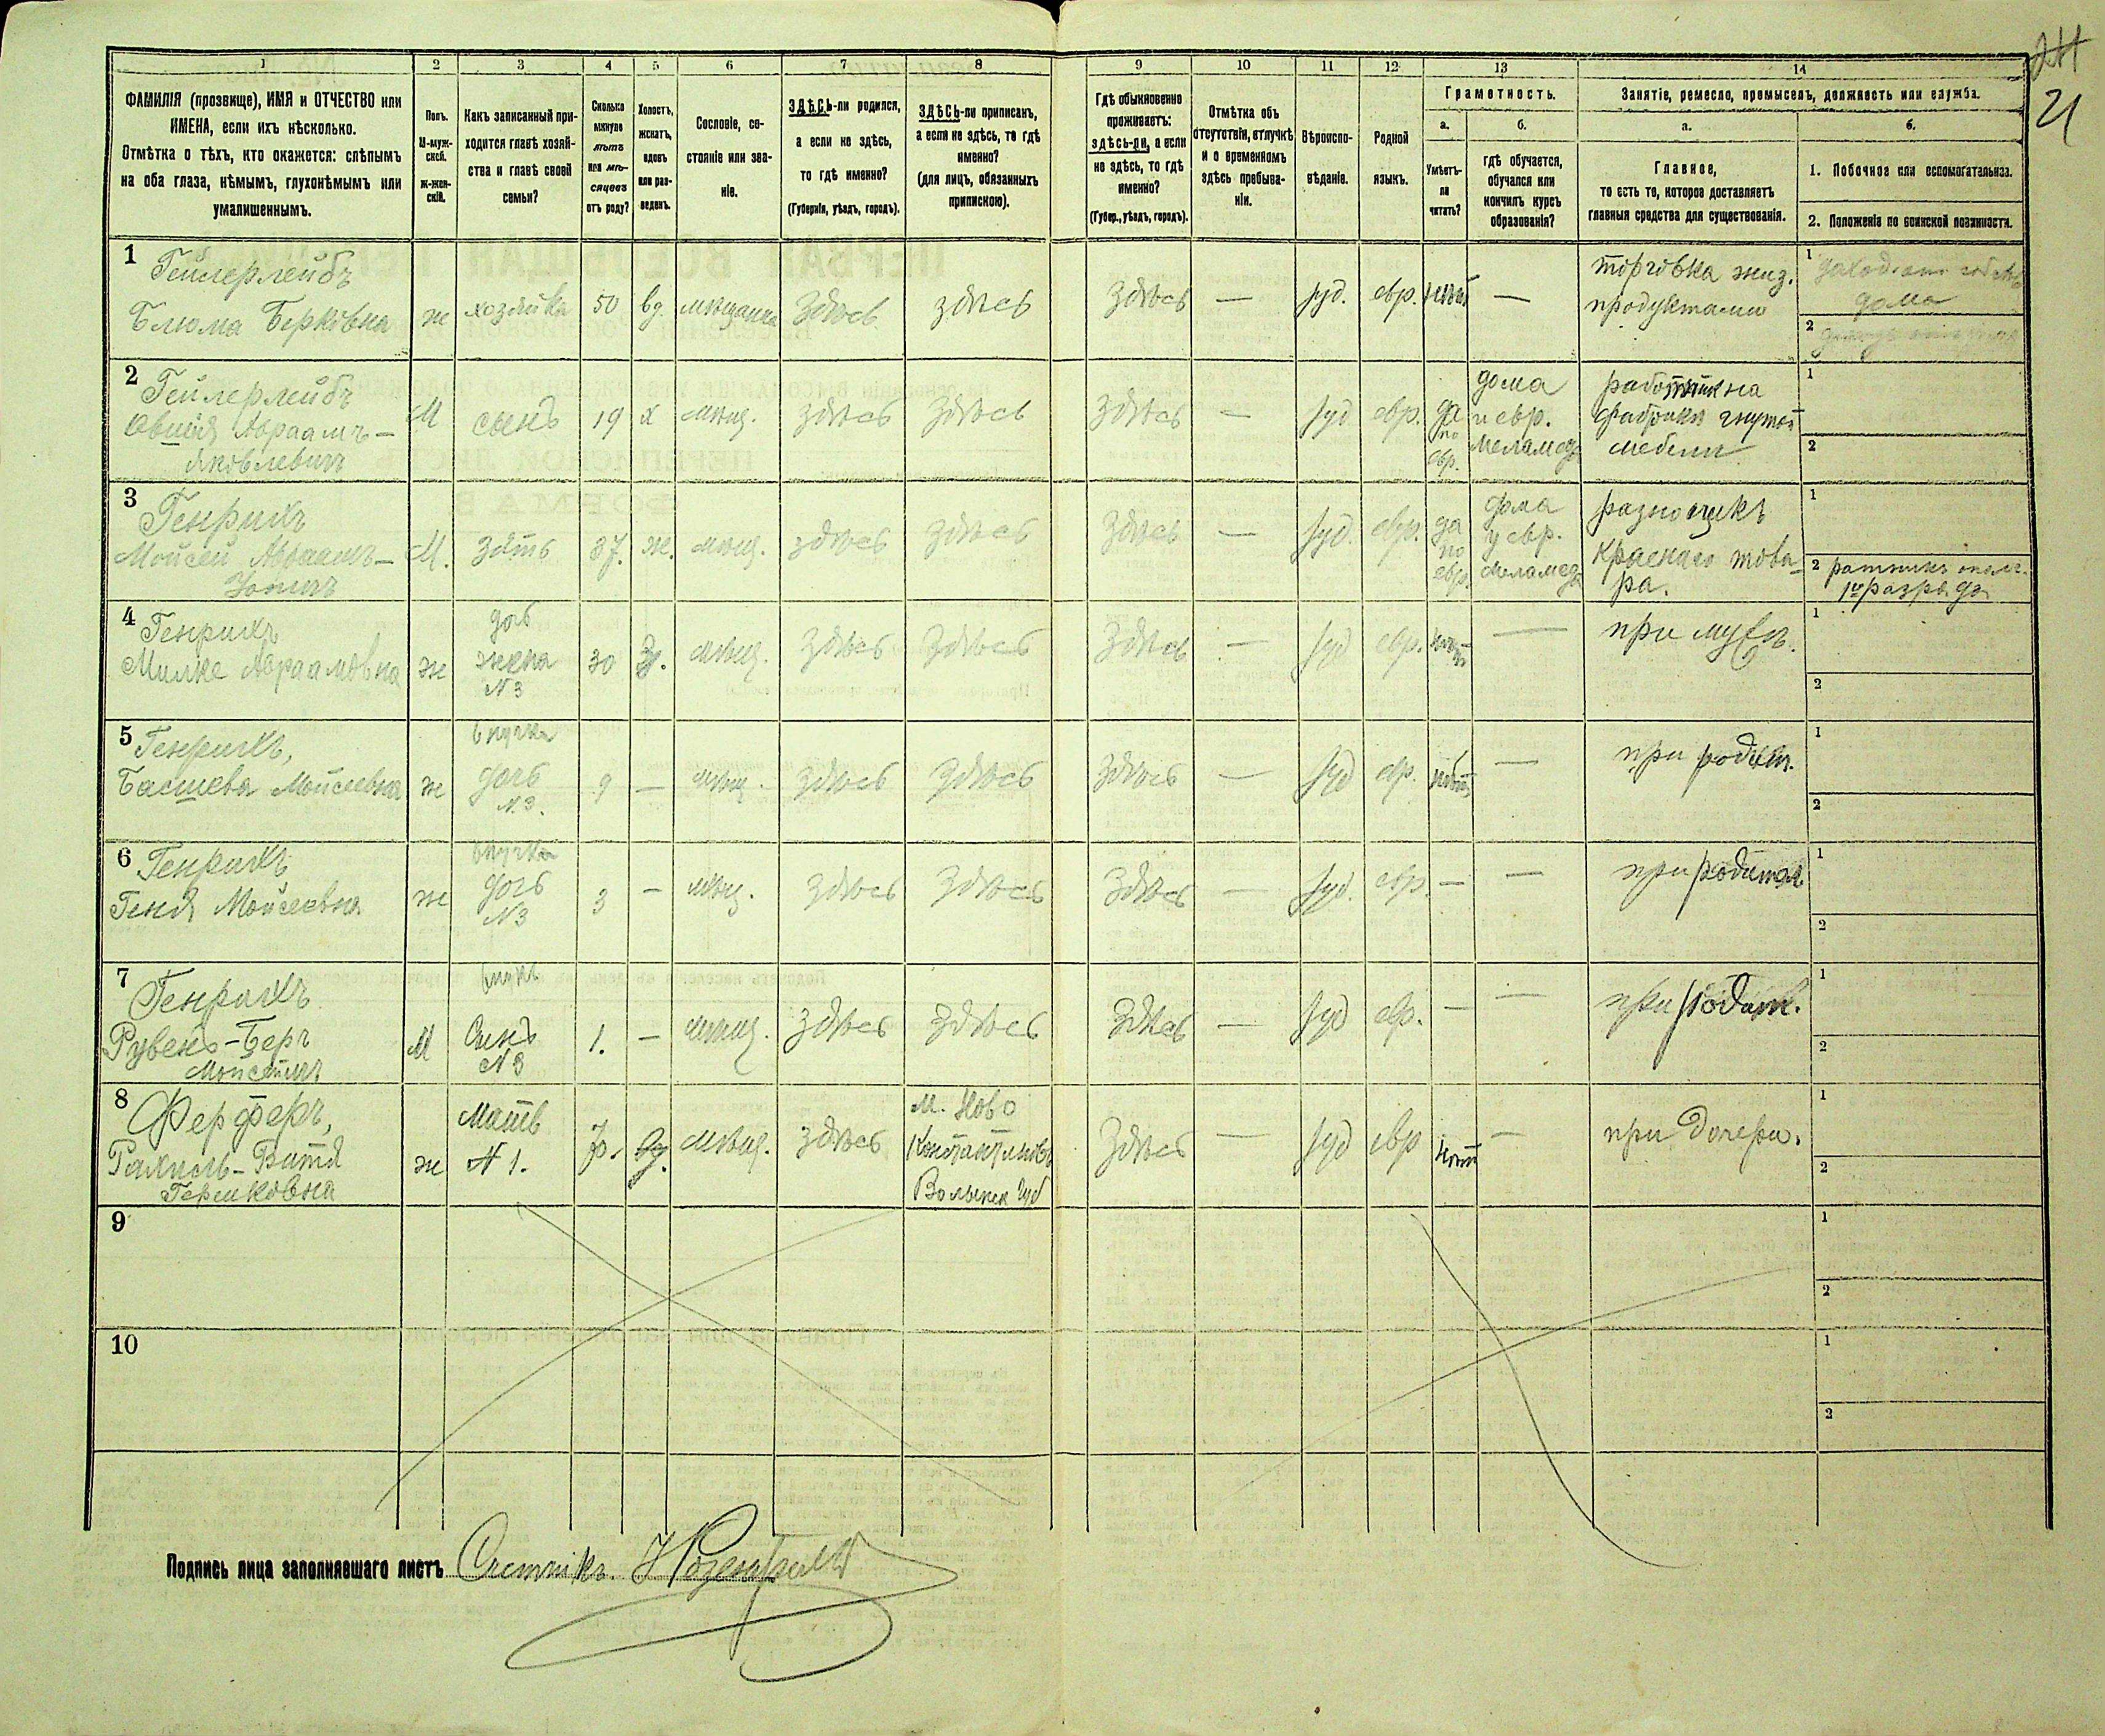 24
21
1 2 3 4 5 6 7 8 9 10 11 12 13 14
ФАМИЛІЯ (прозвище), ИМЯ и ОТЧЕСТВО или
ИМЕНА, если ихъ нѣсколько.
Отмѣтка о тѣхъ, кто окажется: слѣпымъ
на оба глаза, нѣмымъ, глухонѣмымъ или
умалишеннымъ.
Полъ.
М-муж-
ской.
ж-жен-
скій.
Какъ записанный при-
ходится главѣ хозяй-
ства и главѣ своей
семьи?
Сколько
минуло
лѣтъ
или мѣ-
сяцевъ
отъ роду?
Холостъ,
женатъ,
вдовъ
или раз-
веденъ.
Сословіе, со-
стояніе или зва-
ніе.
ЗДѢСЬ-ли родился,
а если не здѣсь,
то гдѣ именно?
(Губернія, уѣздъ, городъ).
ЗДѢСЬ-ли приписанъ,
а если не здѣсь, то гдѣ
именно?
(для лицъ, обязанныхъ
припискою).
Гдѣ обыкновенно
проживаетъ:
здѣсь-ли, а если
не здѣсь, то гдѣ
именно?
(Губер., уѣздъ, городъ).
Отмѣтка объ
отсутствіи, отлучкѣ
и о временномъ
здѣсь пребыва-
ніи.
Вѣроиспо-
вѣданіе.
Родной
языкъ.
Грамотность.
а.
Умѣетъ-
ли
читать?
б.
гдѣ обучается,
обучался или
кончилъ курсъ
образованія?
Занятіе, ремесло, промыселъ, должность или служба.
а.
Главное,
то есть то, которое доставляетъ
главныя средства для существованія.
б.
1. Побочное или вспомогательное.
2. Положеніе по воинской повинности.
1 Гейлерлейбъ
Блюма Берковна
ж хозяйка 50 вд. мѣщанка здѣсь здѣсь здѣсь — іуд. евр. нѣтъ —
торговка жиз.
продуктами
1 доход. отъ собств.
дома
2
2 Гейлерлейбъ
Овшія Авраамъ-
Яковлевичъ
М сынъ 19 х мѣщ. здѣсь здѣсь здѣсь — іуд евр.
да
по
евр.
дома
и евр.
меламеда
работникъ на
фабрикѣ гнутой
мебели
1
2
3 Генрихъ
Мойсей Авраамъ-
М. зять 37. ж. мѣщ. здѣсь здѣсь здѣсь — іуд. евр.
да
по
евр.
дома
у евр.
меламеда
разносчикъ
краснаго това-
ра.
1
2 ратникъ ополч.
1го разряда
4 Генрихъ
Милке Авраамовна
ж
дочь
жена
N 3
30 З. мѣщ. здѣсь здѣсь здѣсь — іуд евр. нѣтъ —
при мужѣ.
1
2
5 Генрихъ,
Басшева Мойсеевна
ж
внучка
дочь
N. 3.
9 — мѣщ. здѣсь здѣсь здѣсь — іуд евр. нѣтъ —
при родит.
1
2
6 Генрихъ
Геня Мойсеевна
ж
внучка
дочь
N3
3 — мѣщ. здѣсь здѣсь здѣсь — іуд. евр — —
при родител
1
2
7 Генрихъ
Рувенъ-Беръ
Мойсеевичъ
М
внукъ
Сынъ
N 3
1. — мѣщ. здѣсь здѣсь здѣсь — іуд евр. — —
при родит.
1
2
8 Ферферъ,
Рахиль-Витя
Гершковна
ж
Мать
N 1.
вд. мѣщ. здѣсь
м. Ново
Константиновъ
Волынск губ
здѣсь — іуд евр нѣтъ —
при дочери.
1
2
9
1
2
10
1
2
Подпись лица заполнявшаго листъ Счетчикъ.